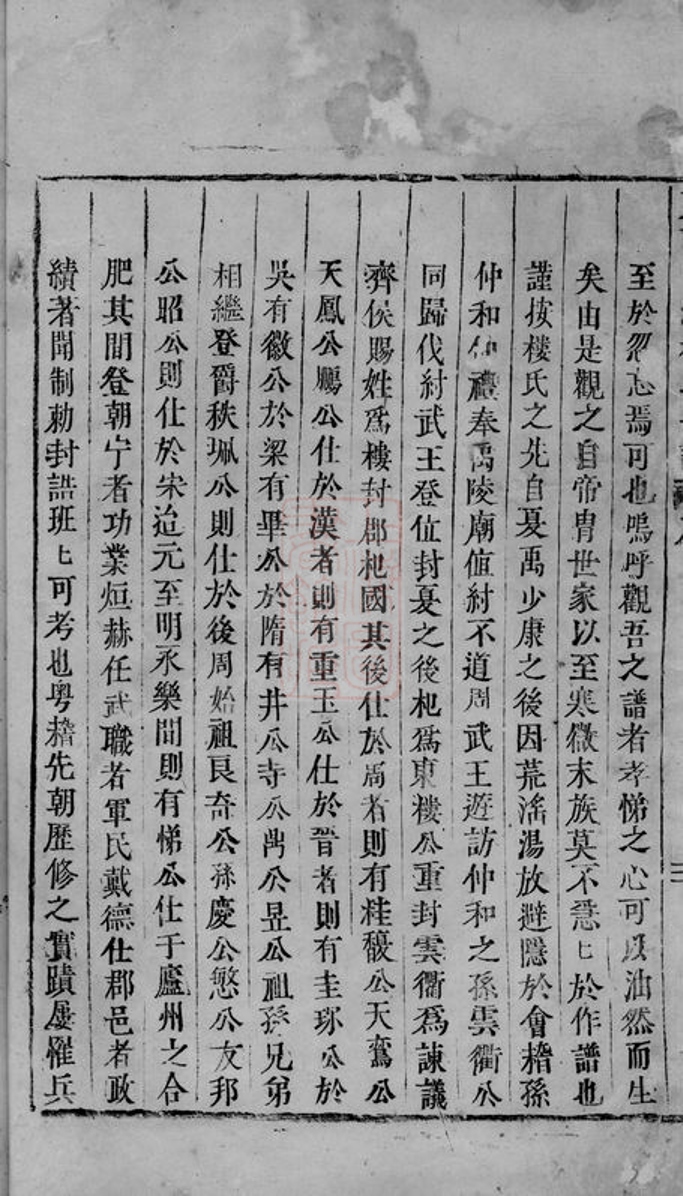 至於忽忘焉可也嗚呼觀吾之譜者孝悌之心可以油然而生
矣由是觀之自帝胄世家以至寒微末族莫不惓匕於作譜也
謹按樓氏之先自夏禹少康之後因荒滛湯放避隱於會稽孫
仲和仙禮奉禹陵廟値紂不道周武王遊訪仲和之孫雲衢公
同歸伐紂武王登位封夏之後杞爲東樓公重封雲衢爲諫議
濟侯賜姓爲樓封郡杞國其後仕於周者則有桂馥公天鸞公
天鳳公鵬公仕於漢者則有重玉公仕於晉者則有圭琢公於
吳有徽公於梁有畢公於隋有井公寺公尚公昱公祖孫兄弟
相繼登爵秩珮公則仕於後周始祖良奇公孫慶公慜公友邦
公昭公則仕於宋迨元至明永樂間則有悌公仕于廬州之合
肥其間登朝宁者功業烜赫任武職者軍民戴德仕郡邑者政
績著聞制勅封誥班匕可考也粤稽先朝歷修之實蹟屢罹兵